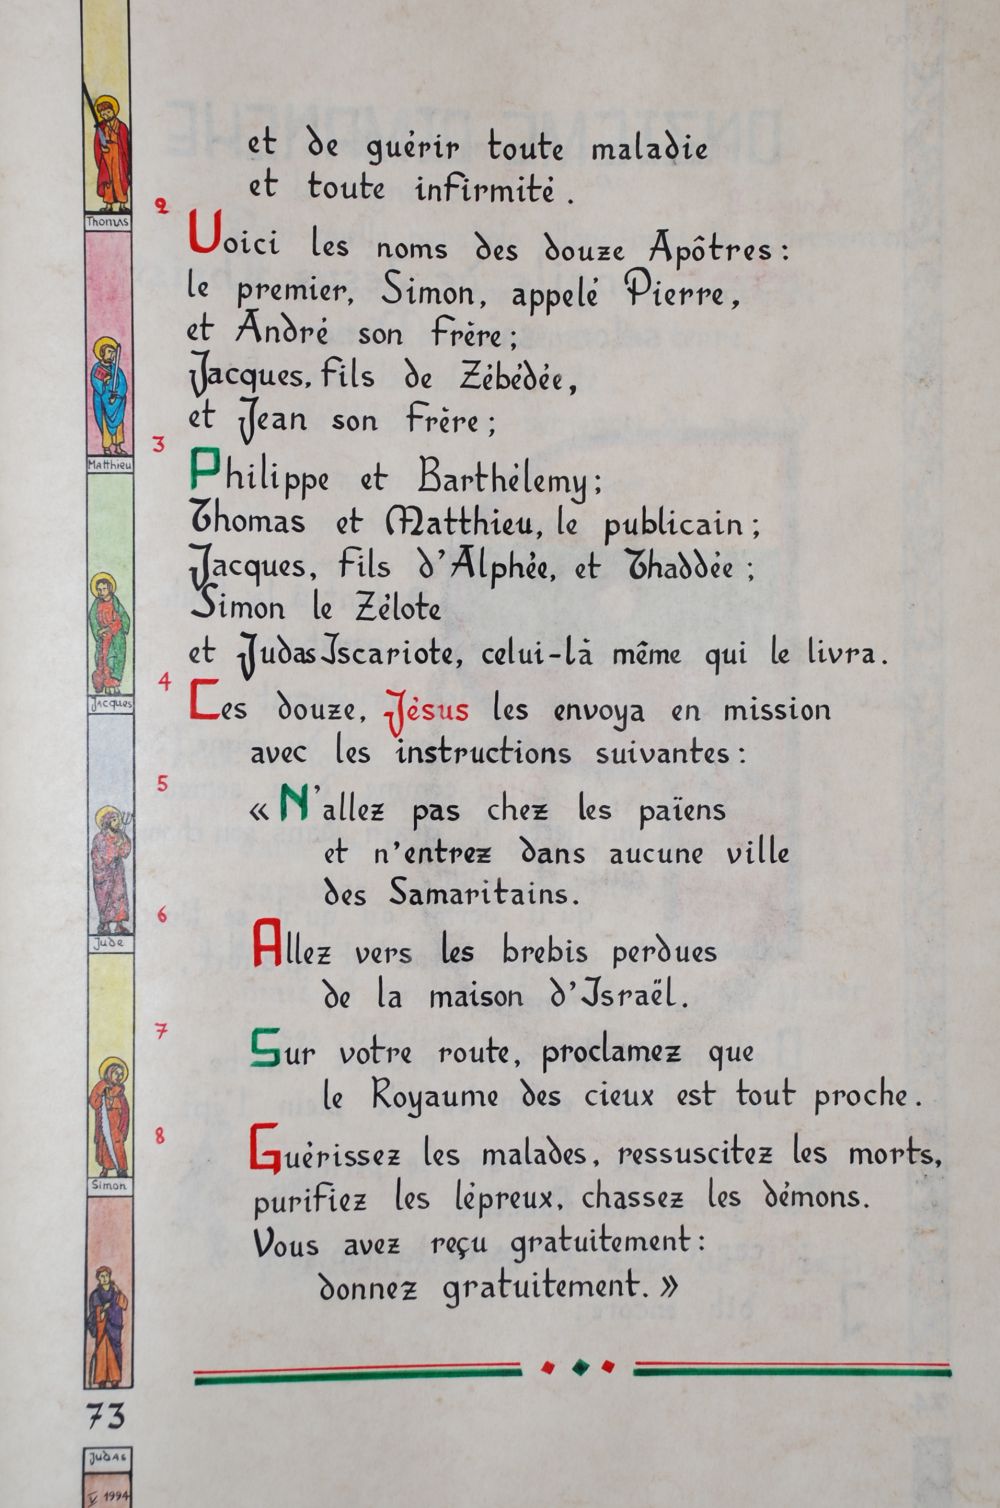 et de guérir toute maladie
et toute infirmité.
2
Voici les noms des douze Apôtres :
le premier, Simon, appelé Pierre,
et André son frère ;
Jacques, fils de Zébédée,
et Jean son frère ;
3
Philippe et Barthélemy ;
Thomas et Matthieu, le publicain ;
Jacques, fils d'Alphée, et Thaddée ;
Simon le Zélote
et Judas Iscariote, celui-là même qui le livra.
4
Ces douze, Jésus les envoya en mission
avec les instructions suivantes :
5
« N'allez pas chez les païens
et n'entrez dans aucune ville
des Samaritains.
6
Allez vers les brebis perdues
de la maison d'Israël.
7
Sur votre route, proclamez que
le Royaume des cieux est tout proche.
8
Guérissez les malades, ressuscitez les morts,
purifiez les lépreux, chassez les démons.
Vous avez reçu gratuitement :
donnez gratuitement. »
Thomas
Matthieu
Jacques
Jude
Simon
73
Judas
V 1994